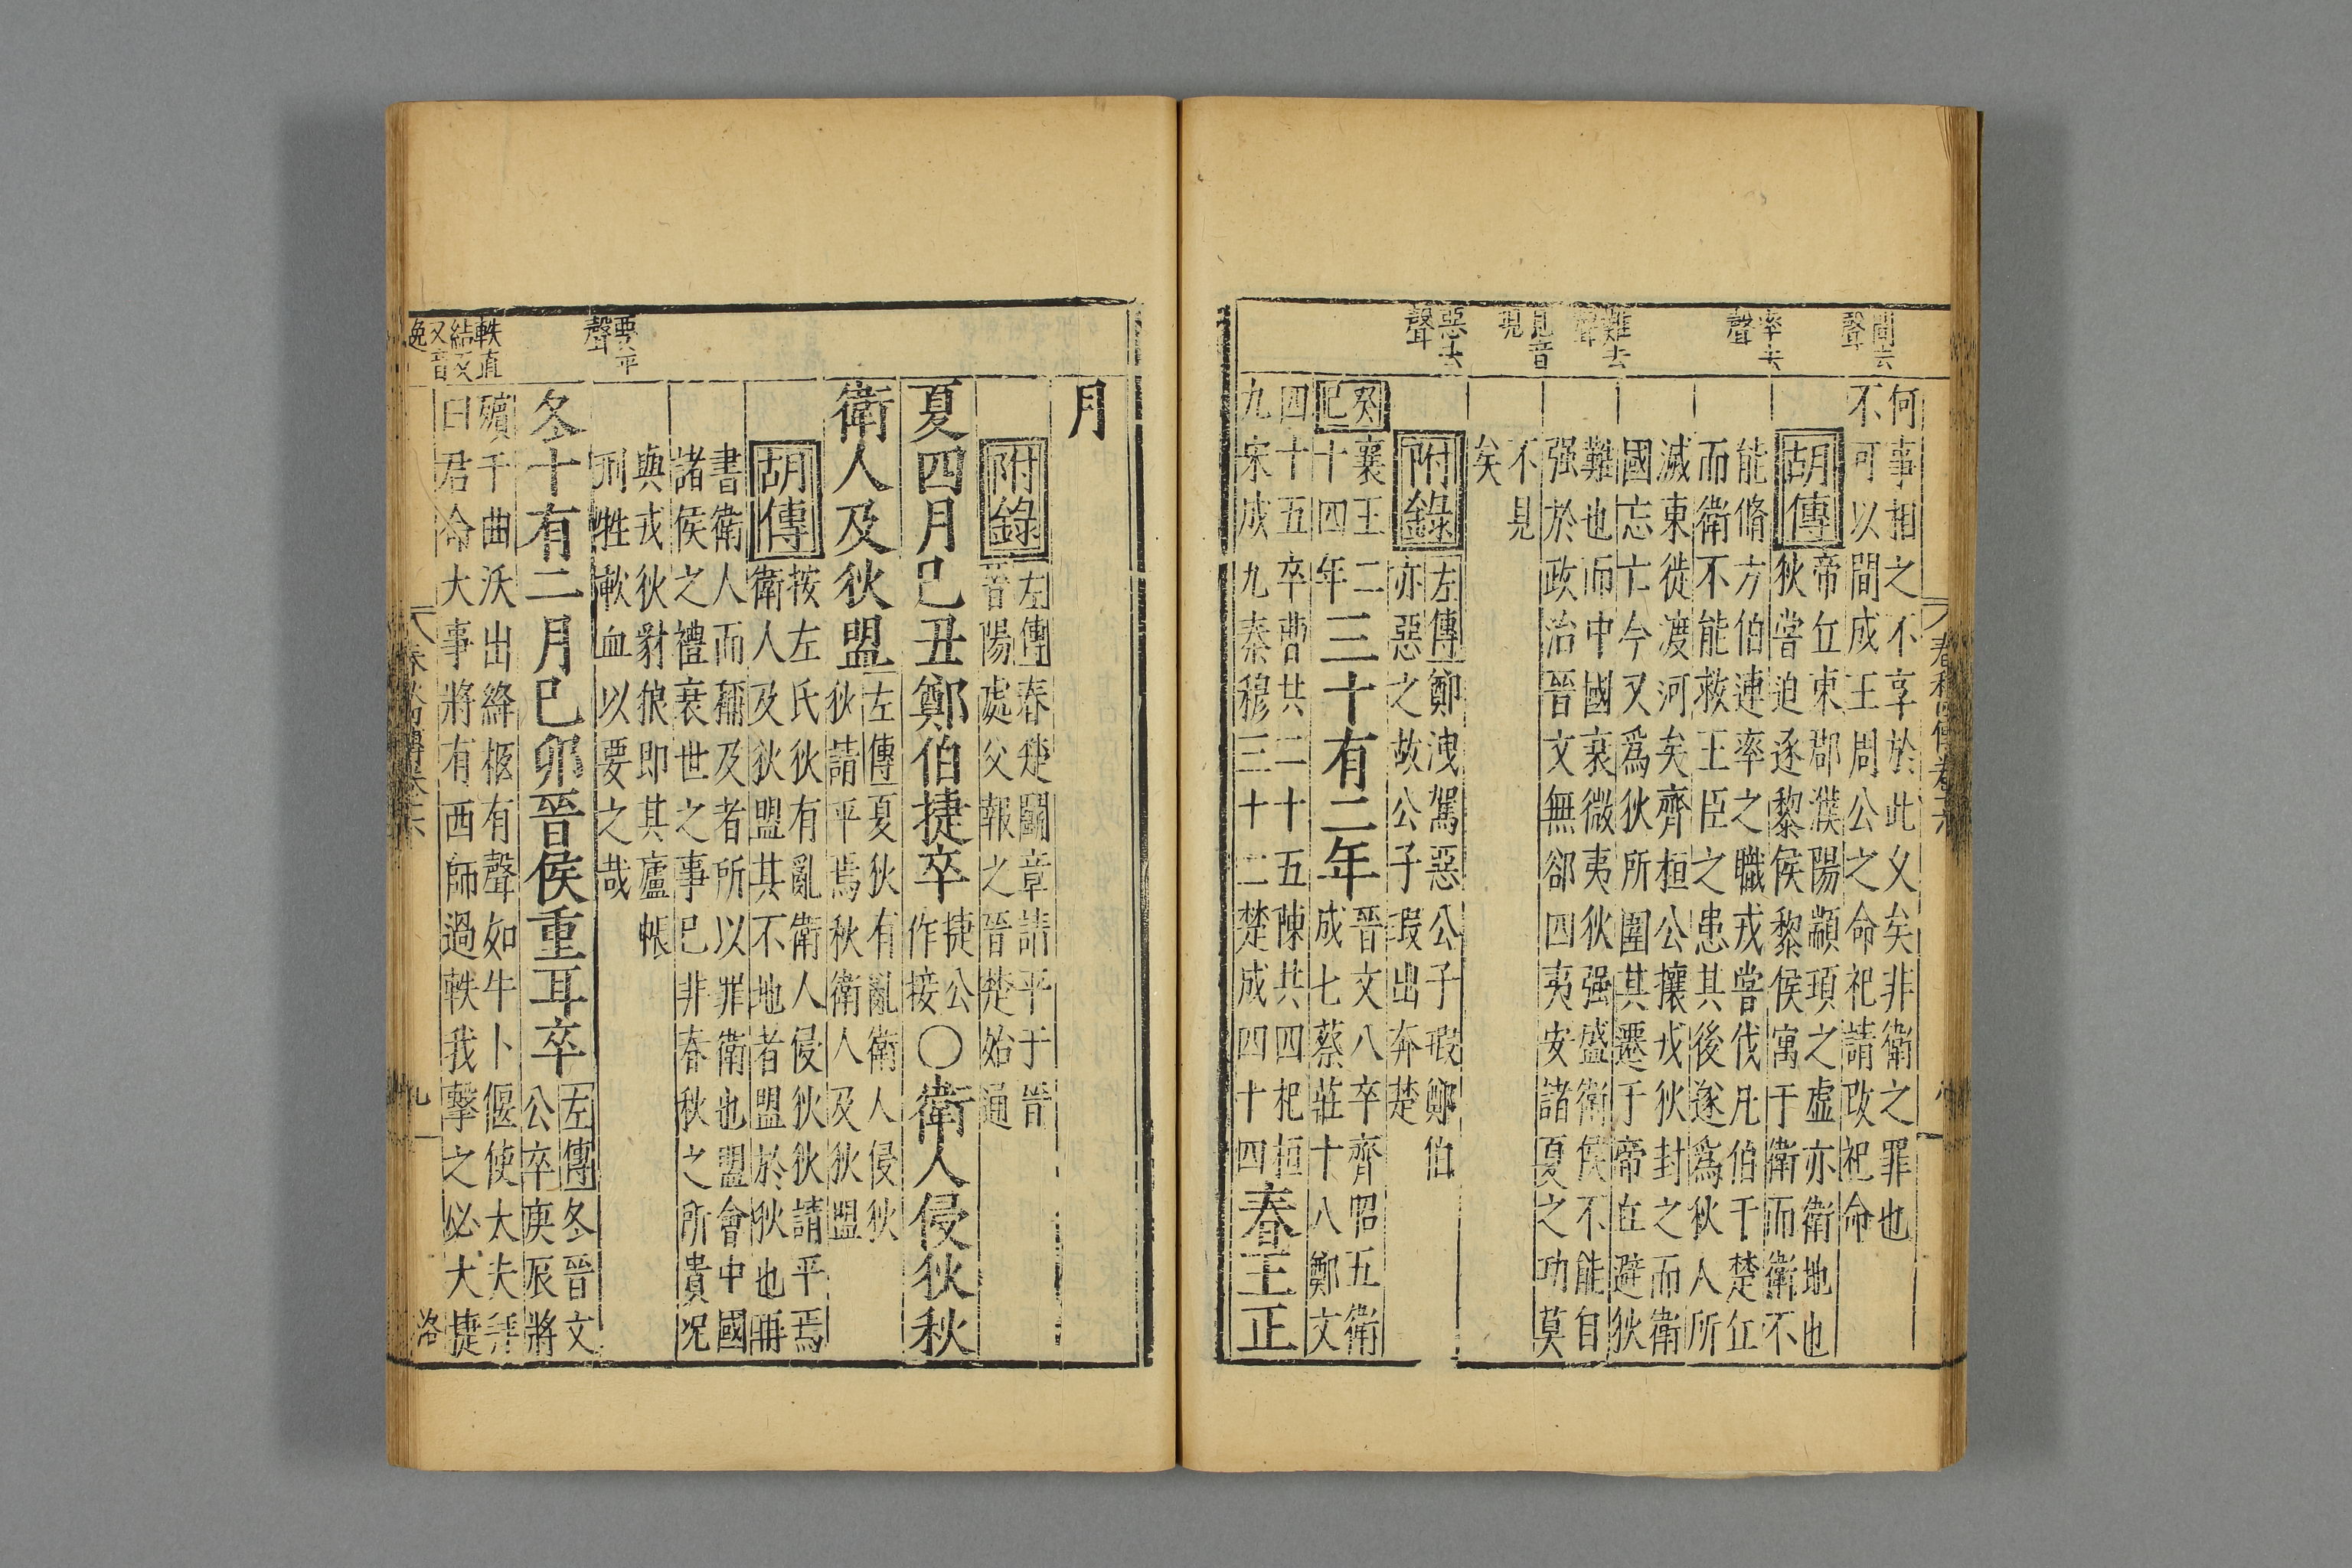 間去聲
率去聲
難去聲
見音現
惡去聲
何事相之不享於此乆矣非衛之罪也
不可以間成王周公之命祀請改祀命
胡傳
帝丘東郡濮陽顓頊之虛亦衛地也
狄嘗迫逐黎侯黎侯寓于衛而衛不
能脩方伯連率之職戎嘗伐凡伯于楚丘
而衛不能救王臣之患其後遂爲狄人所
滅東徙渡河矣齊桓公攘戎狄封之而衛
國忘亡今又爲狄所圍其遷于帝丘避狄
難也而中國衰微夷狄强盛衛侯不能自
强於政治晉文無郤四夷安諸夏之功莫
不見
矣
附錄
左傳鄭洩駕惡公子瑕鄭伯
亦惡之故公子瑕出奔楚
癸巳
襄王二
十四年
三十有二年
晉文八卒齊昭五衛
成七蔡莊十八鄭文
四十五卒曹共二十五陳共四杞桓
九宋成九秦穆三十二楚成四十四
春王正
春秋傳卷六
要平聲
軼直結反又音逸
月
附錄
左傳春楚鬬章請平于晉
晉陽處父報之晉楚始通
夏四月己丑鄭伯捷卒
捷公
作接
〇衛人侵狄秋
衛人及狄盟
左傳夏狄有亂衛人侵狄
狄請平焉秋衛人及狄盟
胡傳
按左氏狄有亂衛人侵狄狄請平焉
衛人及狄盟其不地者盟於狄也再
書衛人而稱及者所以罪衛也盟會中國
諸侯之禮衰世之事已非春秋之所貴况
與戎狄豺狼即其廬帳
刑牲歃血以要之哉
冬十有二月己卯晉侯重耳卒
左傳冬晉文
公卒庚辰將
殯于曲沃出絳柩有聲如牛卜偃使大夫拜
曰君命大事將有西師過軼我擊之必大捷
九
洛